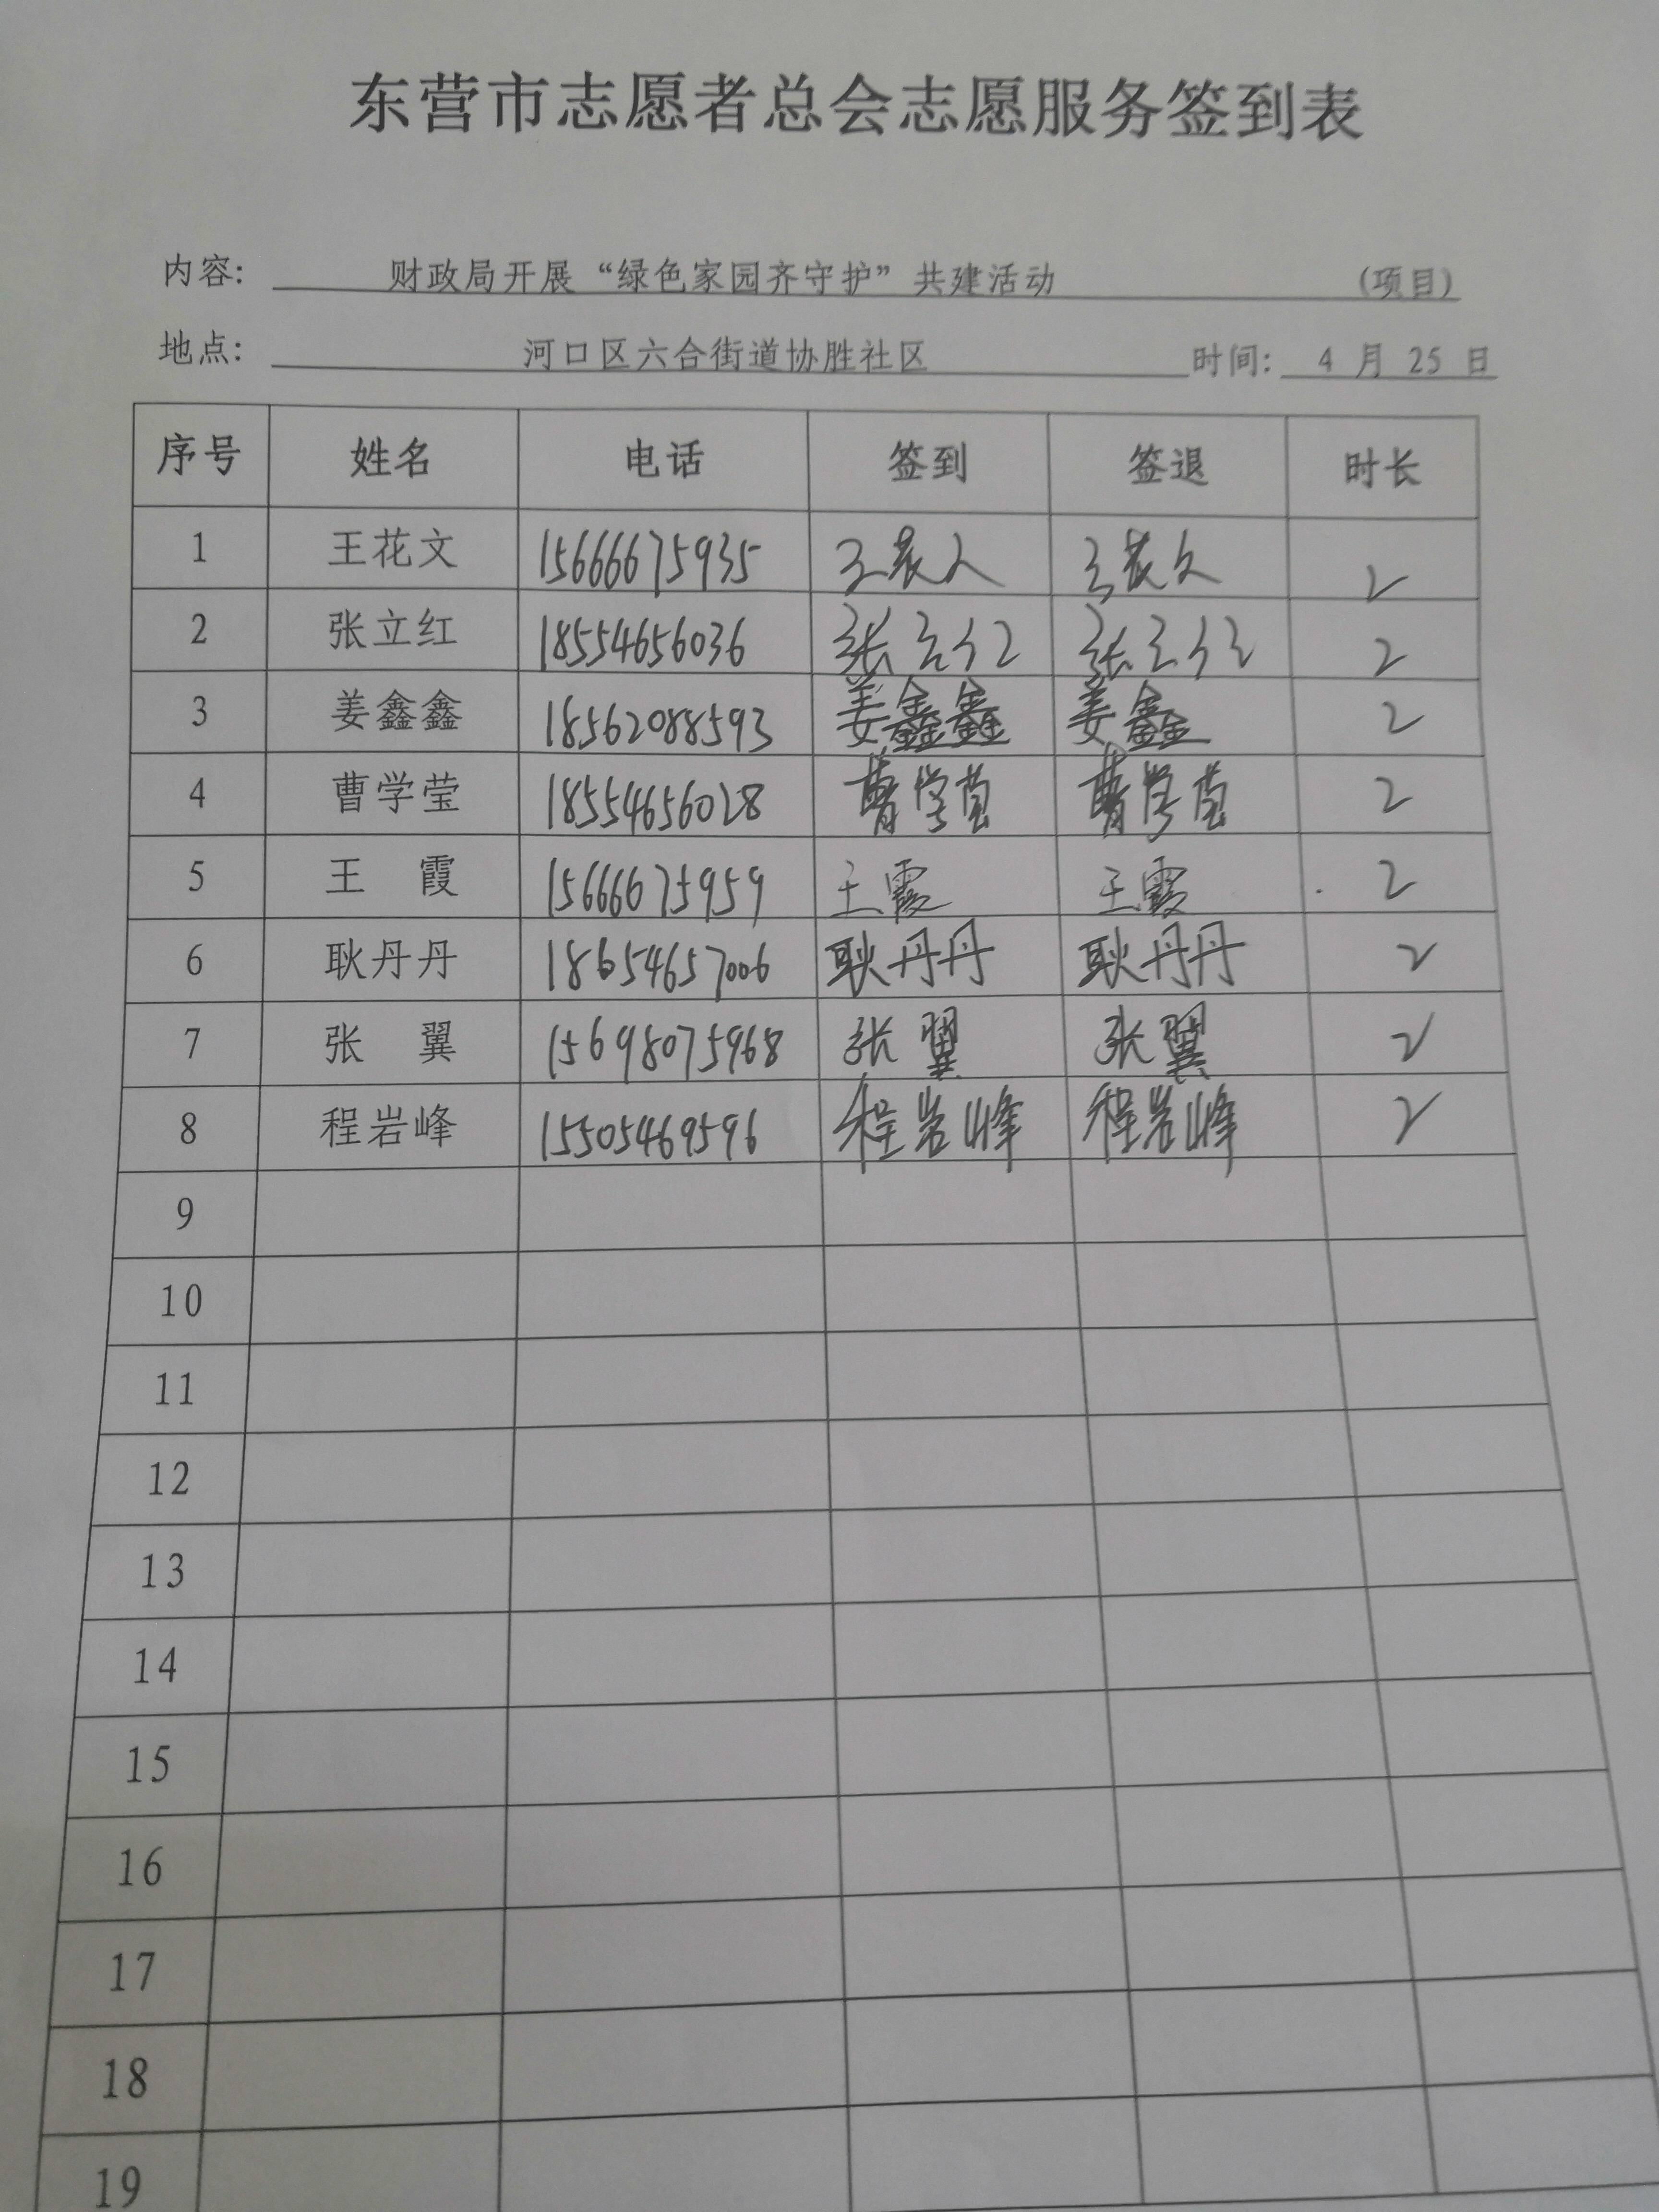 东营市志愿者总会志愿服务签到表
内容: 财政局开展“绿色家园齐守护”共建活动 (项目)
地点: 河口区六合街道协胜社区 时间: 4 月 25 日
序号 姓名 电话 签到 签退 时长
1 王花文 15666675935 王花文 王花文 2
2 张立红 18554656036 张立红 张立红 2
3 姜鑫鑫 18562088593 姜鑫鑫 姜鑫 2
4 曹学莹 18554656028 曹学莹 曹学莹 2
5 王 霞 15666675959 王霞 王霞 2
6 耿丹丹 18654657006 耿丹丹 耿丹丹 2
7 张 翼 15698075968 张翼 张翼 2
8 程岩峰 15505469596 程岩峰 程岩峰 2
9
10
11
12
13
14
15
16
17
18
19